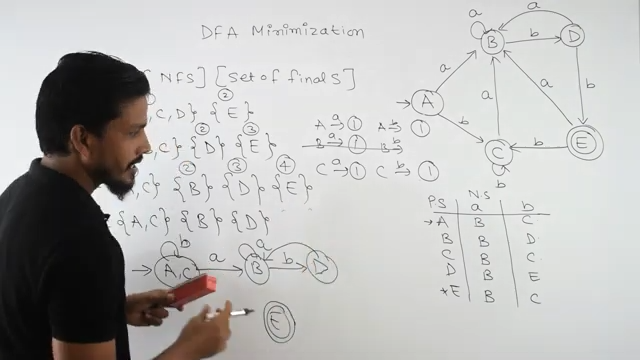 DFA Minimization
NFS] [Set of finals]
②
C, D} {E}
② ③
C} {D} {E}
② ③ ④
, C} {B} {D} {E}
{A, C} {B} {D}
A a→ ① A b→ ①
B a→ ① B b→
C a→ ① C b→ ①
b a a
A, C B b D
E
a a
B b D
a a a b
A b
C b E
b
NS
PS a b
→A B C
B B D
C B C
D B E
*E B C